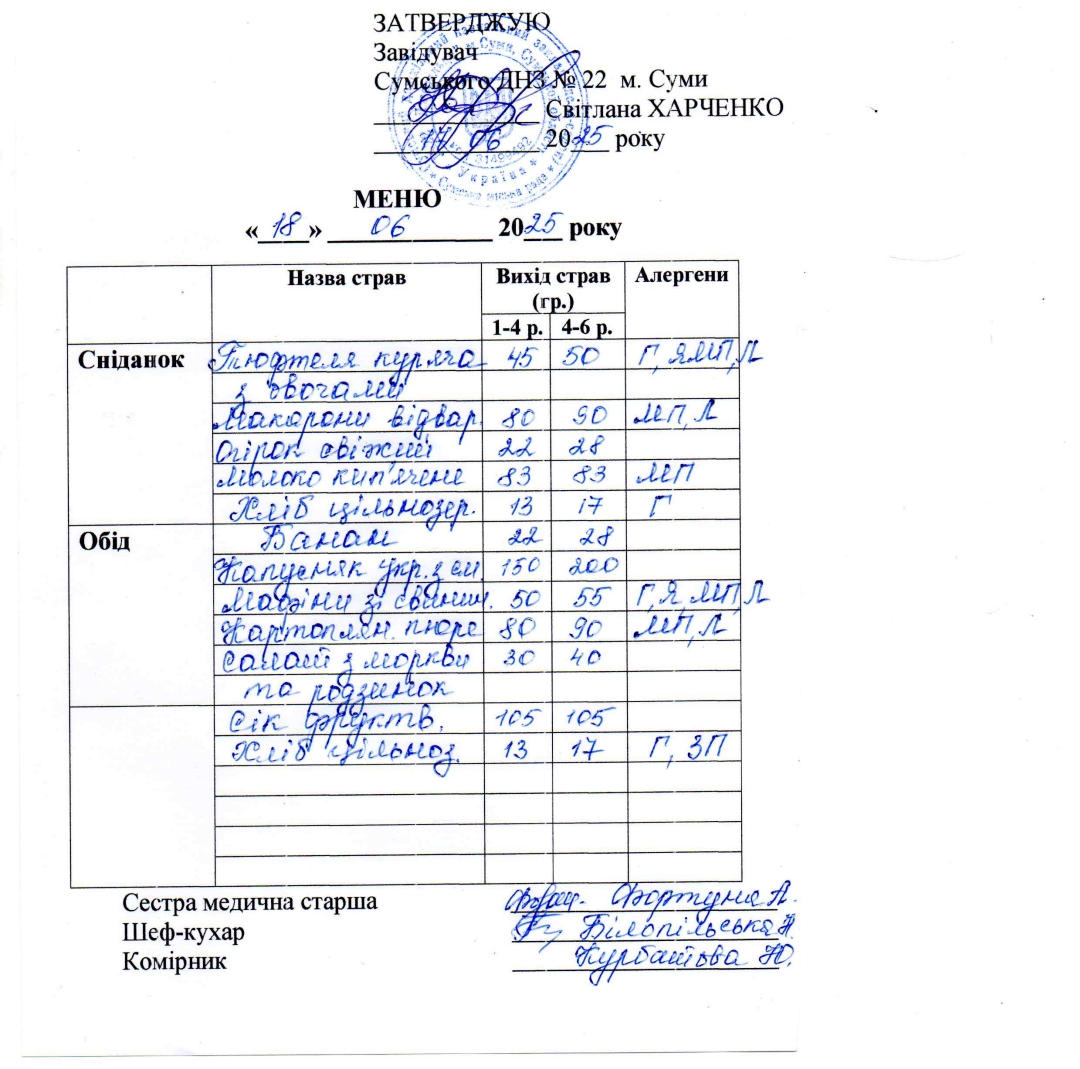 ЗАТВЕРДЖУЮ
Завідувач
Сумського ДНЗ № 22 м. Суми
Світлана ХАРЧЕНКО
17 06 2025 року
МЕНЮ
«18» 06 2025 року
Назва страв Вихід страв (гр.) Алергени
1-4 р. 4-6 р.
Сніданок Тюфтеля куряча 45 50 Г, Я, МП, Л
з овочами
Макарони відвар. 80 90 МП, Л
Огірок свіжий 22 28
Молоко кип'ячене 83 83 МП
Хліб цільнозер. 13 17 Г
Обід Банан 22 28
Капусняк укр. з см. 150 200
Мафіни зі свинин. 50 55 Г, Я, МП, Л
Картоплян. пюре 80 90 МП, Л
Салат з моркви 30 40
та родзинок
Сік фруктв. 105 105
Хліб цільноз. 13 17 Г, ЗП
Сестра медична старша Фортуна А.
Шеф-кухар Білопільська Н.
Комірник Курбатова Ю.